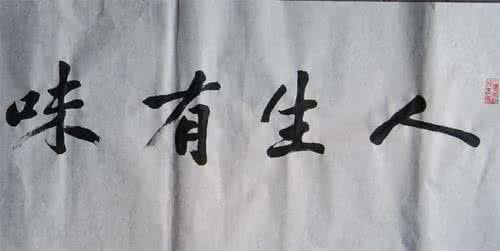 人生有味